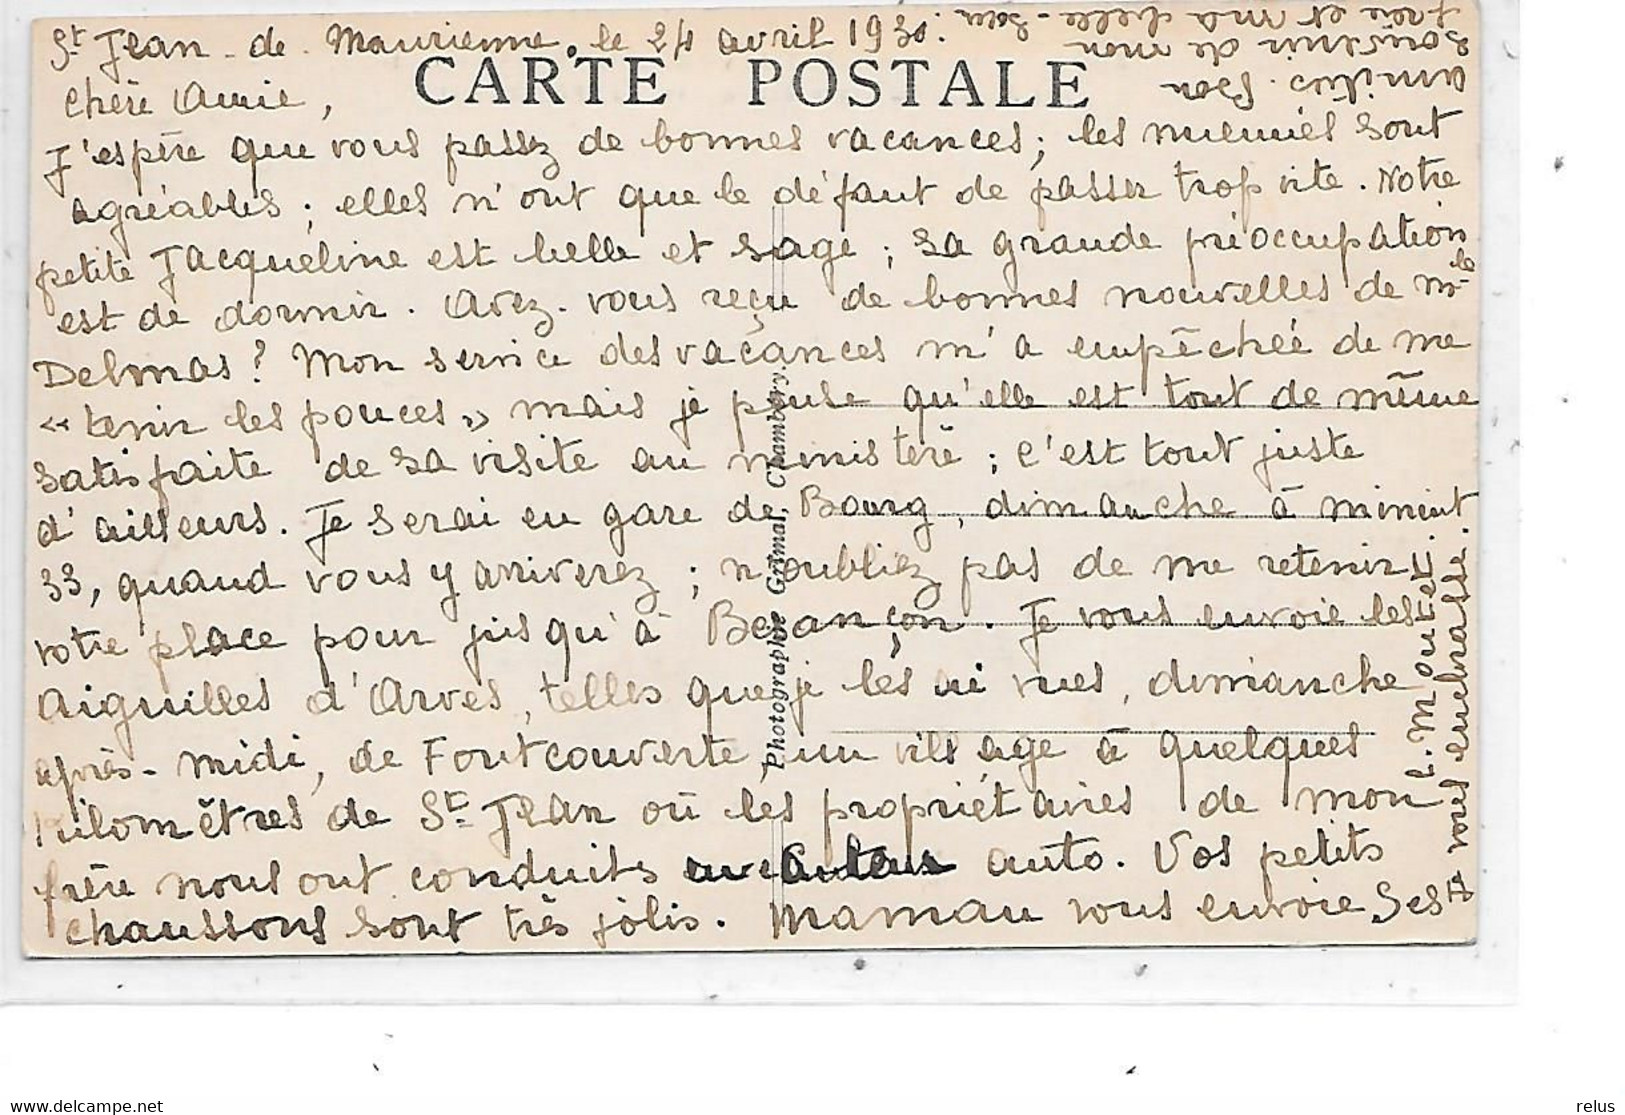 St Jean-de-Maurienne, le 24 avril 1930.
CARTE POSTALE
Chère Amie,
J'espère que vous passez de bonnes vacances; les miennes sont
agréables; elles n'ont que le défaut de passer trop vite. Notre
petite Jacqueline est belle et sage; sa grande préoccupation
est de dormir. Avez-vous reçu de bonnes nouvelles de Mlle
Delmas? Mon service des vacances m'a empêchée de me
"tenir les pouces" mais je pense qu'elle est tout de même
satisfaite de sa visite au ministère; c'est tout juste
d'ailleurs. Je serai en gare de Bourg, dimanche à minuit
33, quand vous y arriverez; n'oubliez pas de me retenir
votre place pour jusqu'à Besançon. Je vous envoie les
Aiguilles d'Arves, telles que je les ai vues, dimanche
après-midi, de Fontcouverte, un village à quelques
kilomètres de St Jean où les propriétaires de mon
frère nous ont conduits auto. Vos petits
chaussons sont très jolis. Maman vous envoie ses
amitiés. Bon
souvenir de mon
frère et ma belle-sœur.
Je vous embrasse.
L. Moutet.
Photographie Grimal, Chambéry.
www.delcampe.net
relus